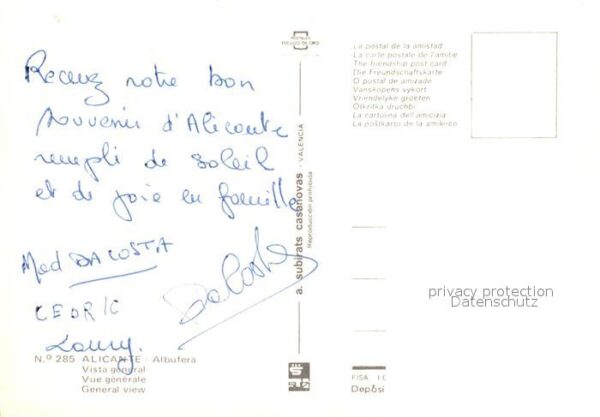 POSTALES
ESCUDO DE ORO
Recevez notre bon
souvenir d'Alicante
rempli de soleil
et de joie en famille
Mad DACOSTA
DaCosta
CEDRIC
N.º 285 ALICANTE - Albufera
Vista general
Vue générale
General view
a. subirats casanovas - VALENCIA
Reproducción prohibida
La postal de la amistad
La carte postale de l'amitie
The friendship post card
Die Freundschaftskarte
O postal de amizade
Vanskopens vykort
Vriendelyke groeten
Otkritka druchbi
La cartolina dell'amicizia
La poŝtkarto de la amikeco
privacy protection
Datenschutz
FISA
Depósi